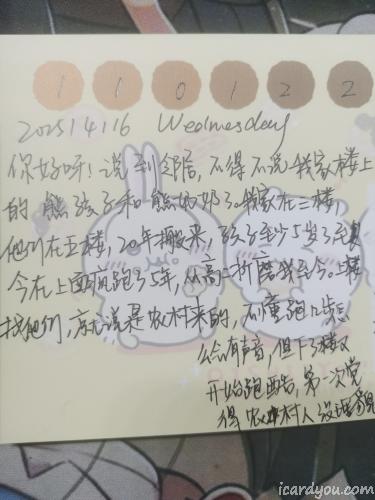 1 1 0 1 2 2
2025/4/16 Wednesday
你好呀!说到邻居,不得不说我家楼上
的熊孩子和熊奶奶了。我家在三楼,
他们在五楼,20年搬来,孩子至少5岁了,
今在上面疯跑了5年,从高二折磨我至今。上楼
找他们,就说是农村来的,不懂跑几步怎
么会有声音,但下了楼又
开始跑酷,第一次觉
得农村人没理
icardyou.com